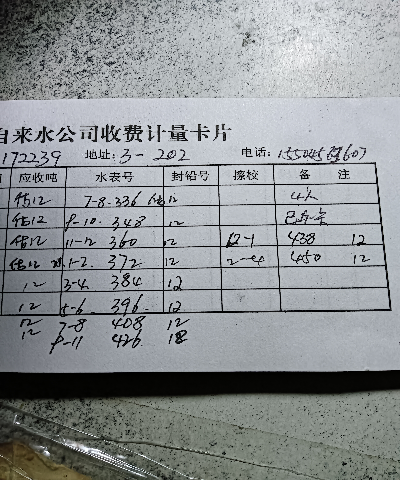 自来水公司收费计量卡片
172239 地址:3-202 电话:
应收吨 水表号 封铅号 擦校 备 注
估12 7-8.336 12
估12 9-10. 348 12
估12 11-12 360 12 12-1 438 12
估12 1-2. 372 12 2-4 450 12
12 3-4. 384 12
12 5-6. 396. 12
12 7-8 408 12
12 9-11 426 18